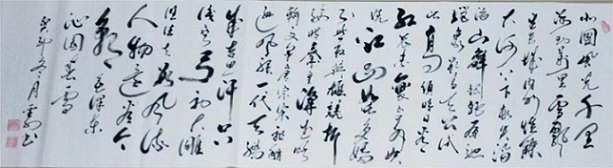 北国风光千里
冰封万里雪飘
望长城内外惟余莽莽
大河上下顿失滔
滔山舞银蛇原驰
蜡象欲与天公试
比高须晴日看
红装素裹分外妖
娆江山如此多娇
引无数英雄竞折
腰惜秦皇汉武略
输文采唐宗宋祖稍
逊风骚一代天骄
成吉思汗只
识弯弓射大雕
俱往矣数风流
人物还看今
朝毛泽东
沁园春雪
癸卯冬月书